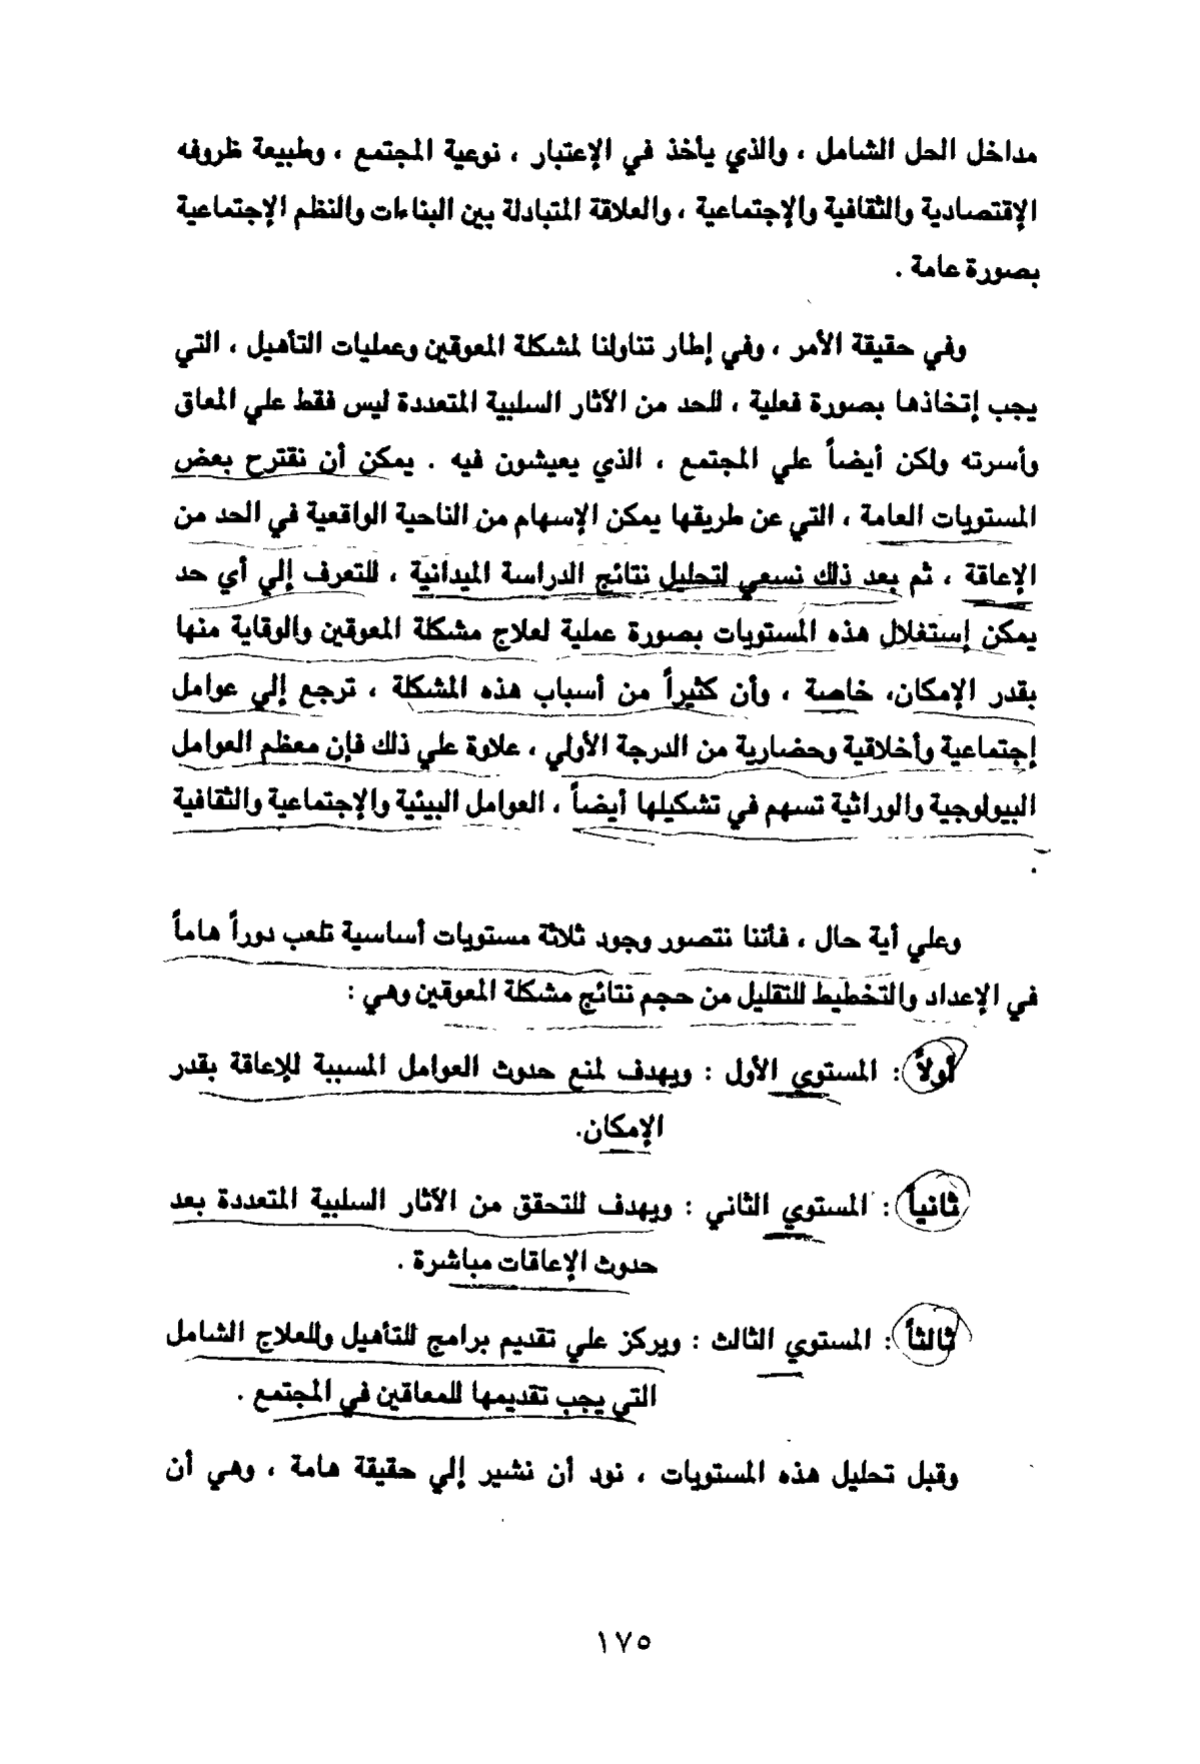 مداخل الحل الشامل ، والذي يأخذ في الإعتبار ، نوعية المجتمع ، وطبيعة ظروفه
الإقتصادية والثقافية والإجتماعية ، والعلاقة المتبادلة بين البناءات والنظم الإجتماعية
بصورة عامة .
وفي حقيقة الأمر ، وفي إطار تناولنا لمشكلة المعوقين وعمليات التأهيل ، التي
يجب إتخاذها بصورة فعلية ، للحد من الآثار السلبية المتعددة ليس فقط علي المعاق
وأسرته ولكن أيضاً علي المجتمع ، الذي يعيشون فيه . يمكن أن نقترح بعض
المستويات العامة ، التي عن طريقها يمكن الإسهام من الناحية الواقعية في الحد من
الإعاقة ، ثم بعد ذلك نسعي لتحليل نتائج الدراسة الميدانية ، للتعرف إلي أي حد
يمكن إستغلال هذه المستويات بصورة عملية لعلاج مشكلة المعوقين والوقاية منها
بقدر الإمكان، خاصة ، وأن كثيراً من أسباب هذه المشكلة ، ترجع إلي عوامل
إجتماعية وأخلاقية وحضارية من الدرجة الأولي ، علاوة علي ذلك فإن معظم العوامل
البيولوجية والوراثية تسهم في تشكيلها أيضاً ، العوامل البيئية والإجتماعية والثقافية
.
وعلي أية حال ، فأننا نتصور وجود ثلاثة مستويات أساسية تلعب دوراً هاماً
في الإعداد والتخطيط للتقليل من حجم نتائج مشكلة المعوقين وهي :
أولاً : المستوي الأول : ويهدف لمنع حدوث العوامل المسببة للإعاقة بقدر
الإمكان.
ثانياً : المستوي الثاني : ويهدف للتحقق من الآثار السلبية المتعددة بعد
حدوث الإعاقات مباشرة .
ثالثاً : المستوي الثالث : ويركز علي تقديم برامج للتأهيل والعلاج الشامل
التي يجب تقديمها للمعاقين في المجتمع .
وقبل تحليل هذه المستويات ، نود أن نشير إلي حقيقة هامة ، وهي أن
١٧٥